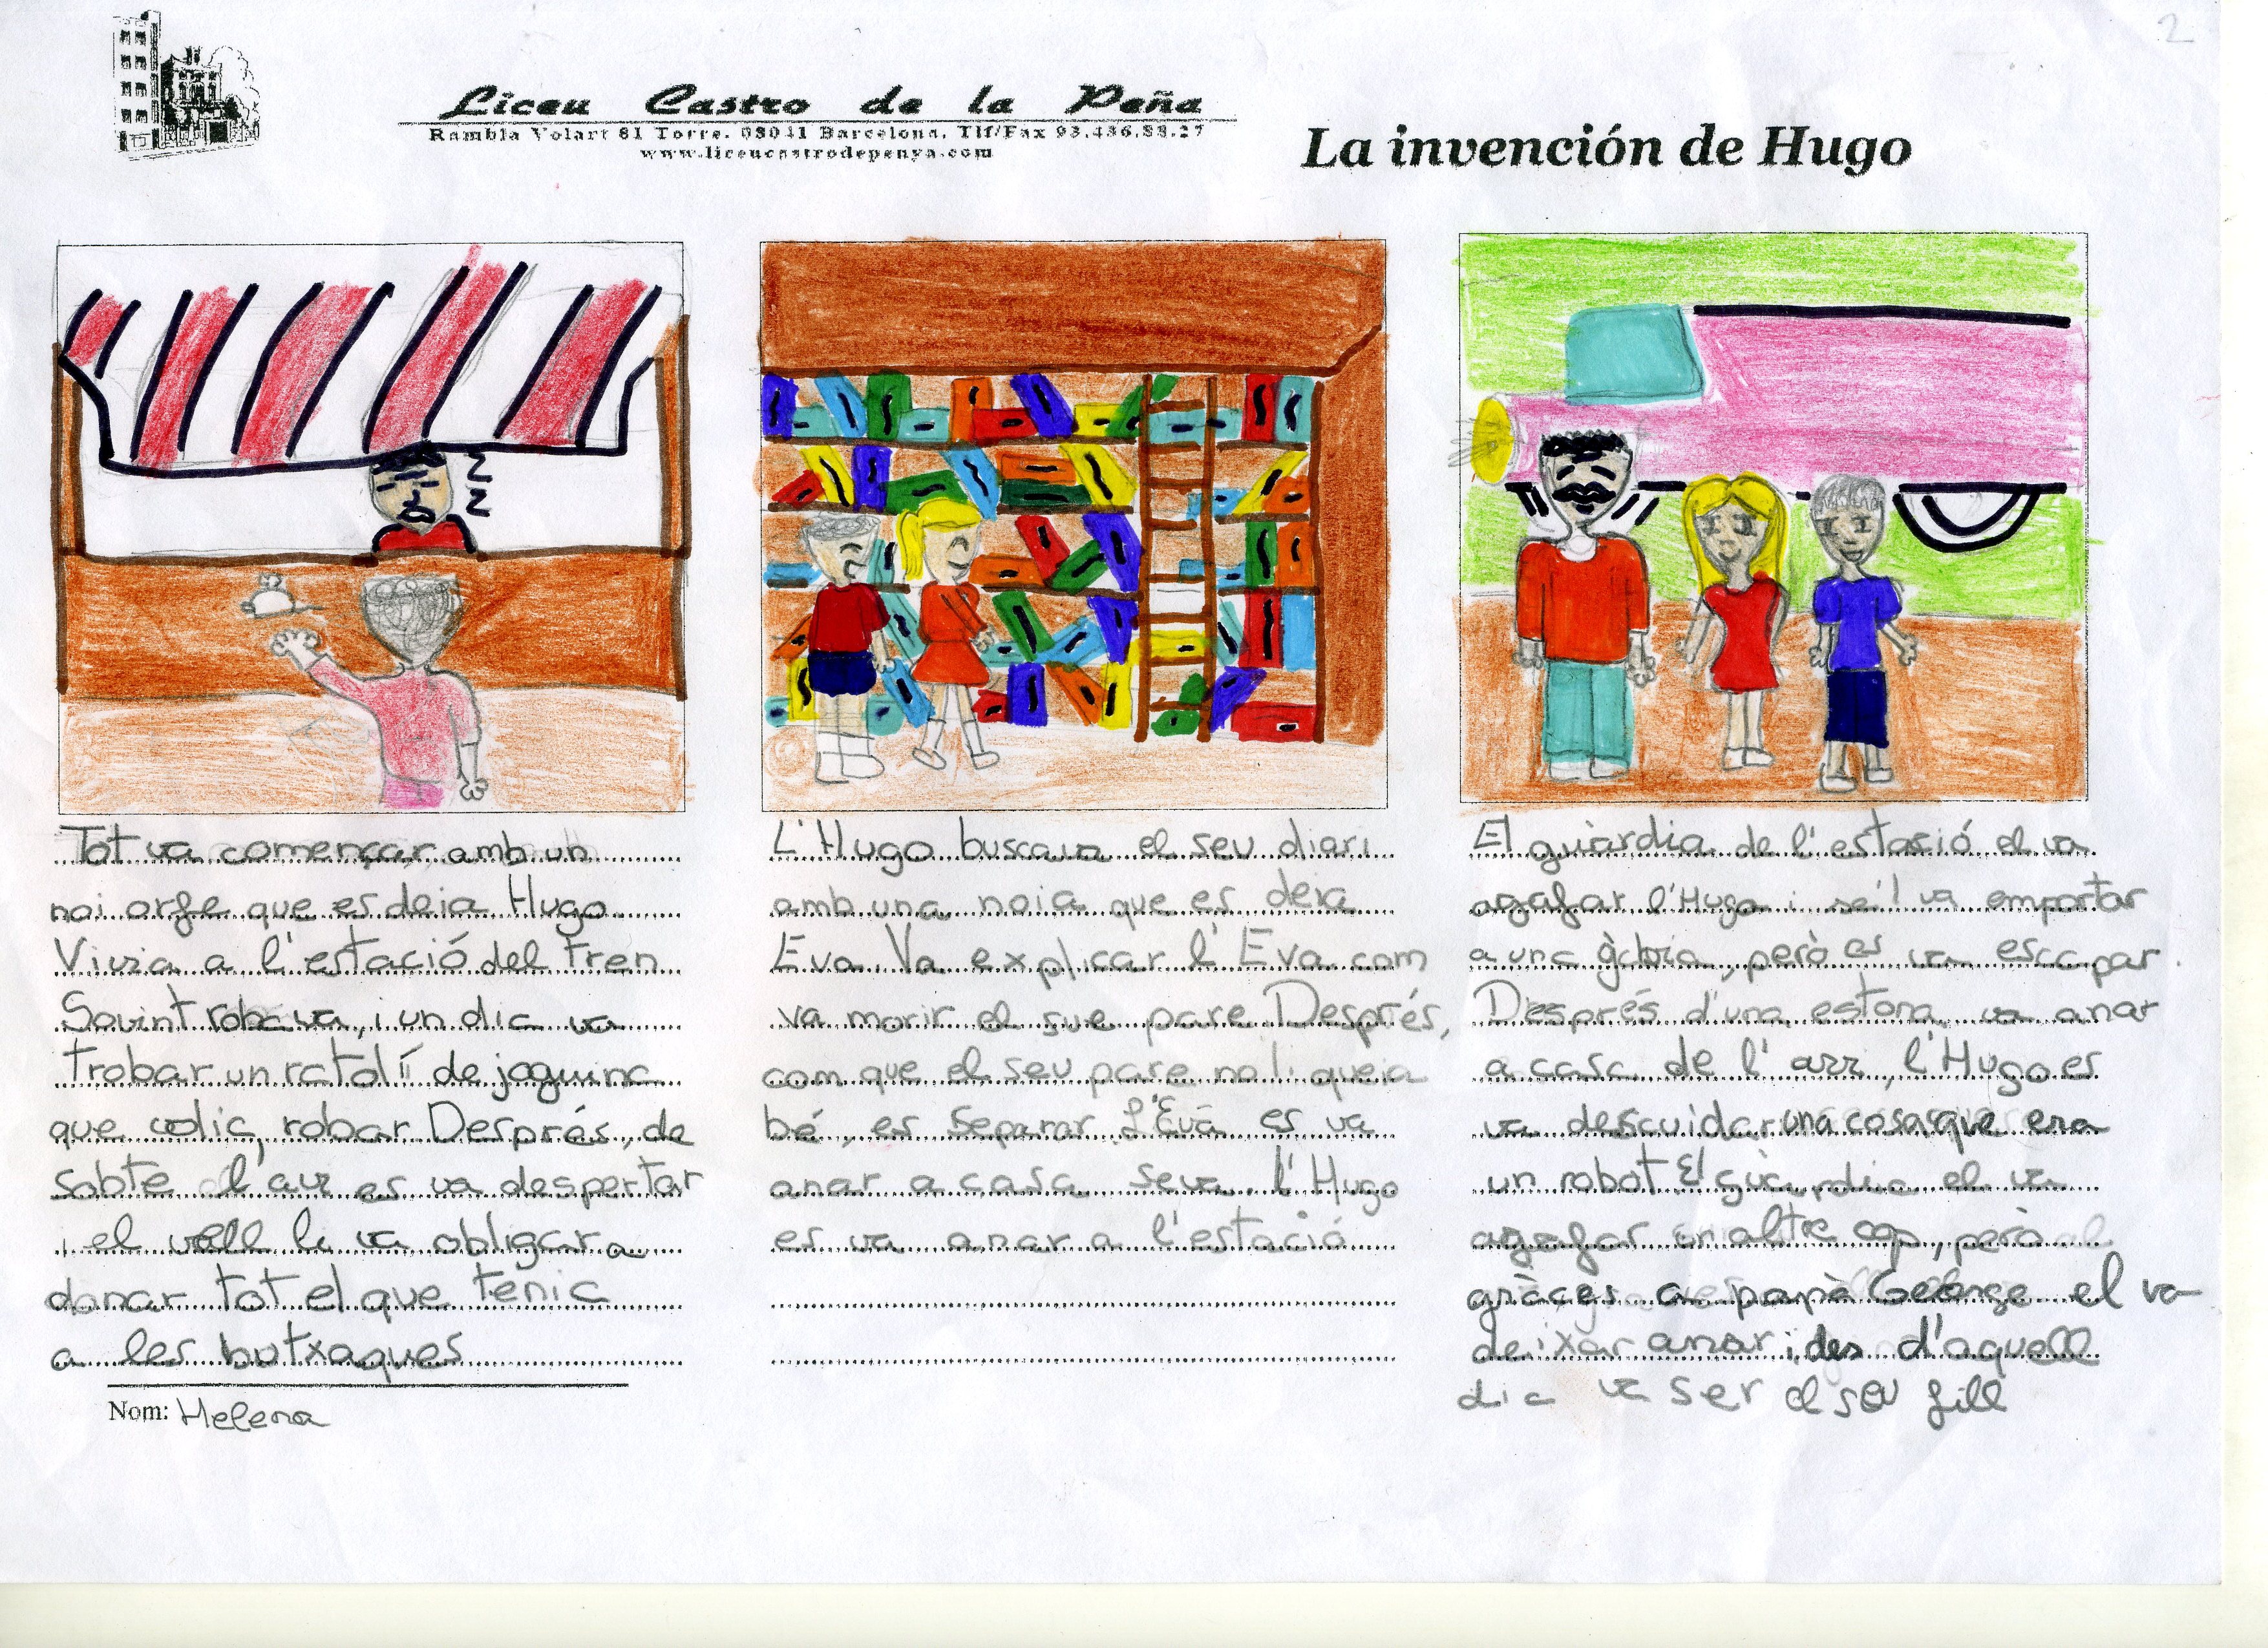 2
Liceu Castro de la Peña
Rambla Volart 81 Torre. 08041 Barcelona. Tlf/Fax 93.436.88.27
www.liceucastrodepenya.com
La invención de Hugo
Z
Z
Tot va començar amb un
noi orfe que es deia Hugo
Vivia a l'estació del tren
Sovint robava, i un dia va
trobar un ratolí de joguina
que volia robar Després, de
sobte l'avi es va despertar
i el vell li va obligar a
donar tot el que tenia
a les butxaques
Nom: Helena
L'Hugo buscava el seu diari
amb una noia que es deia
Eva Va explicar l'Eva com
va morir el sue pare Després,
com que el seu pare no li queia
bé, es separar L'Eva es va
anar a casa seva. l'Hugo
es va anar a l'estació
El guàrdia de l'estasió el va
agafar l'Hugo i se'l va emportar
a una gàbia, però es va escapar.
Després d'una estona va anar
a casa de l' avi, l'Hugo es
va descuidar una cosa que era
un robot El guàrdia el va
agafar un altre cop, però
gràces a papà George el va
deixar anar i des d'aquell
dia va ser el seu fill